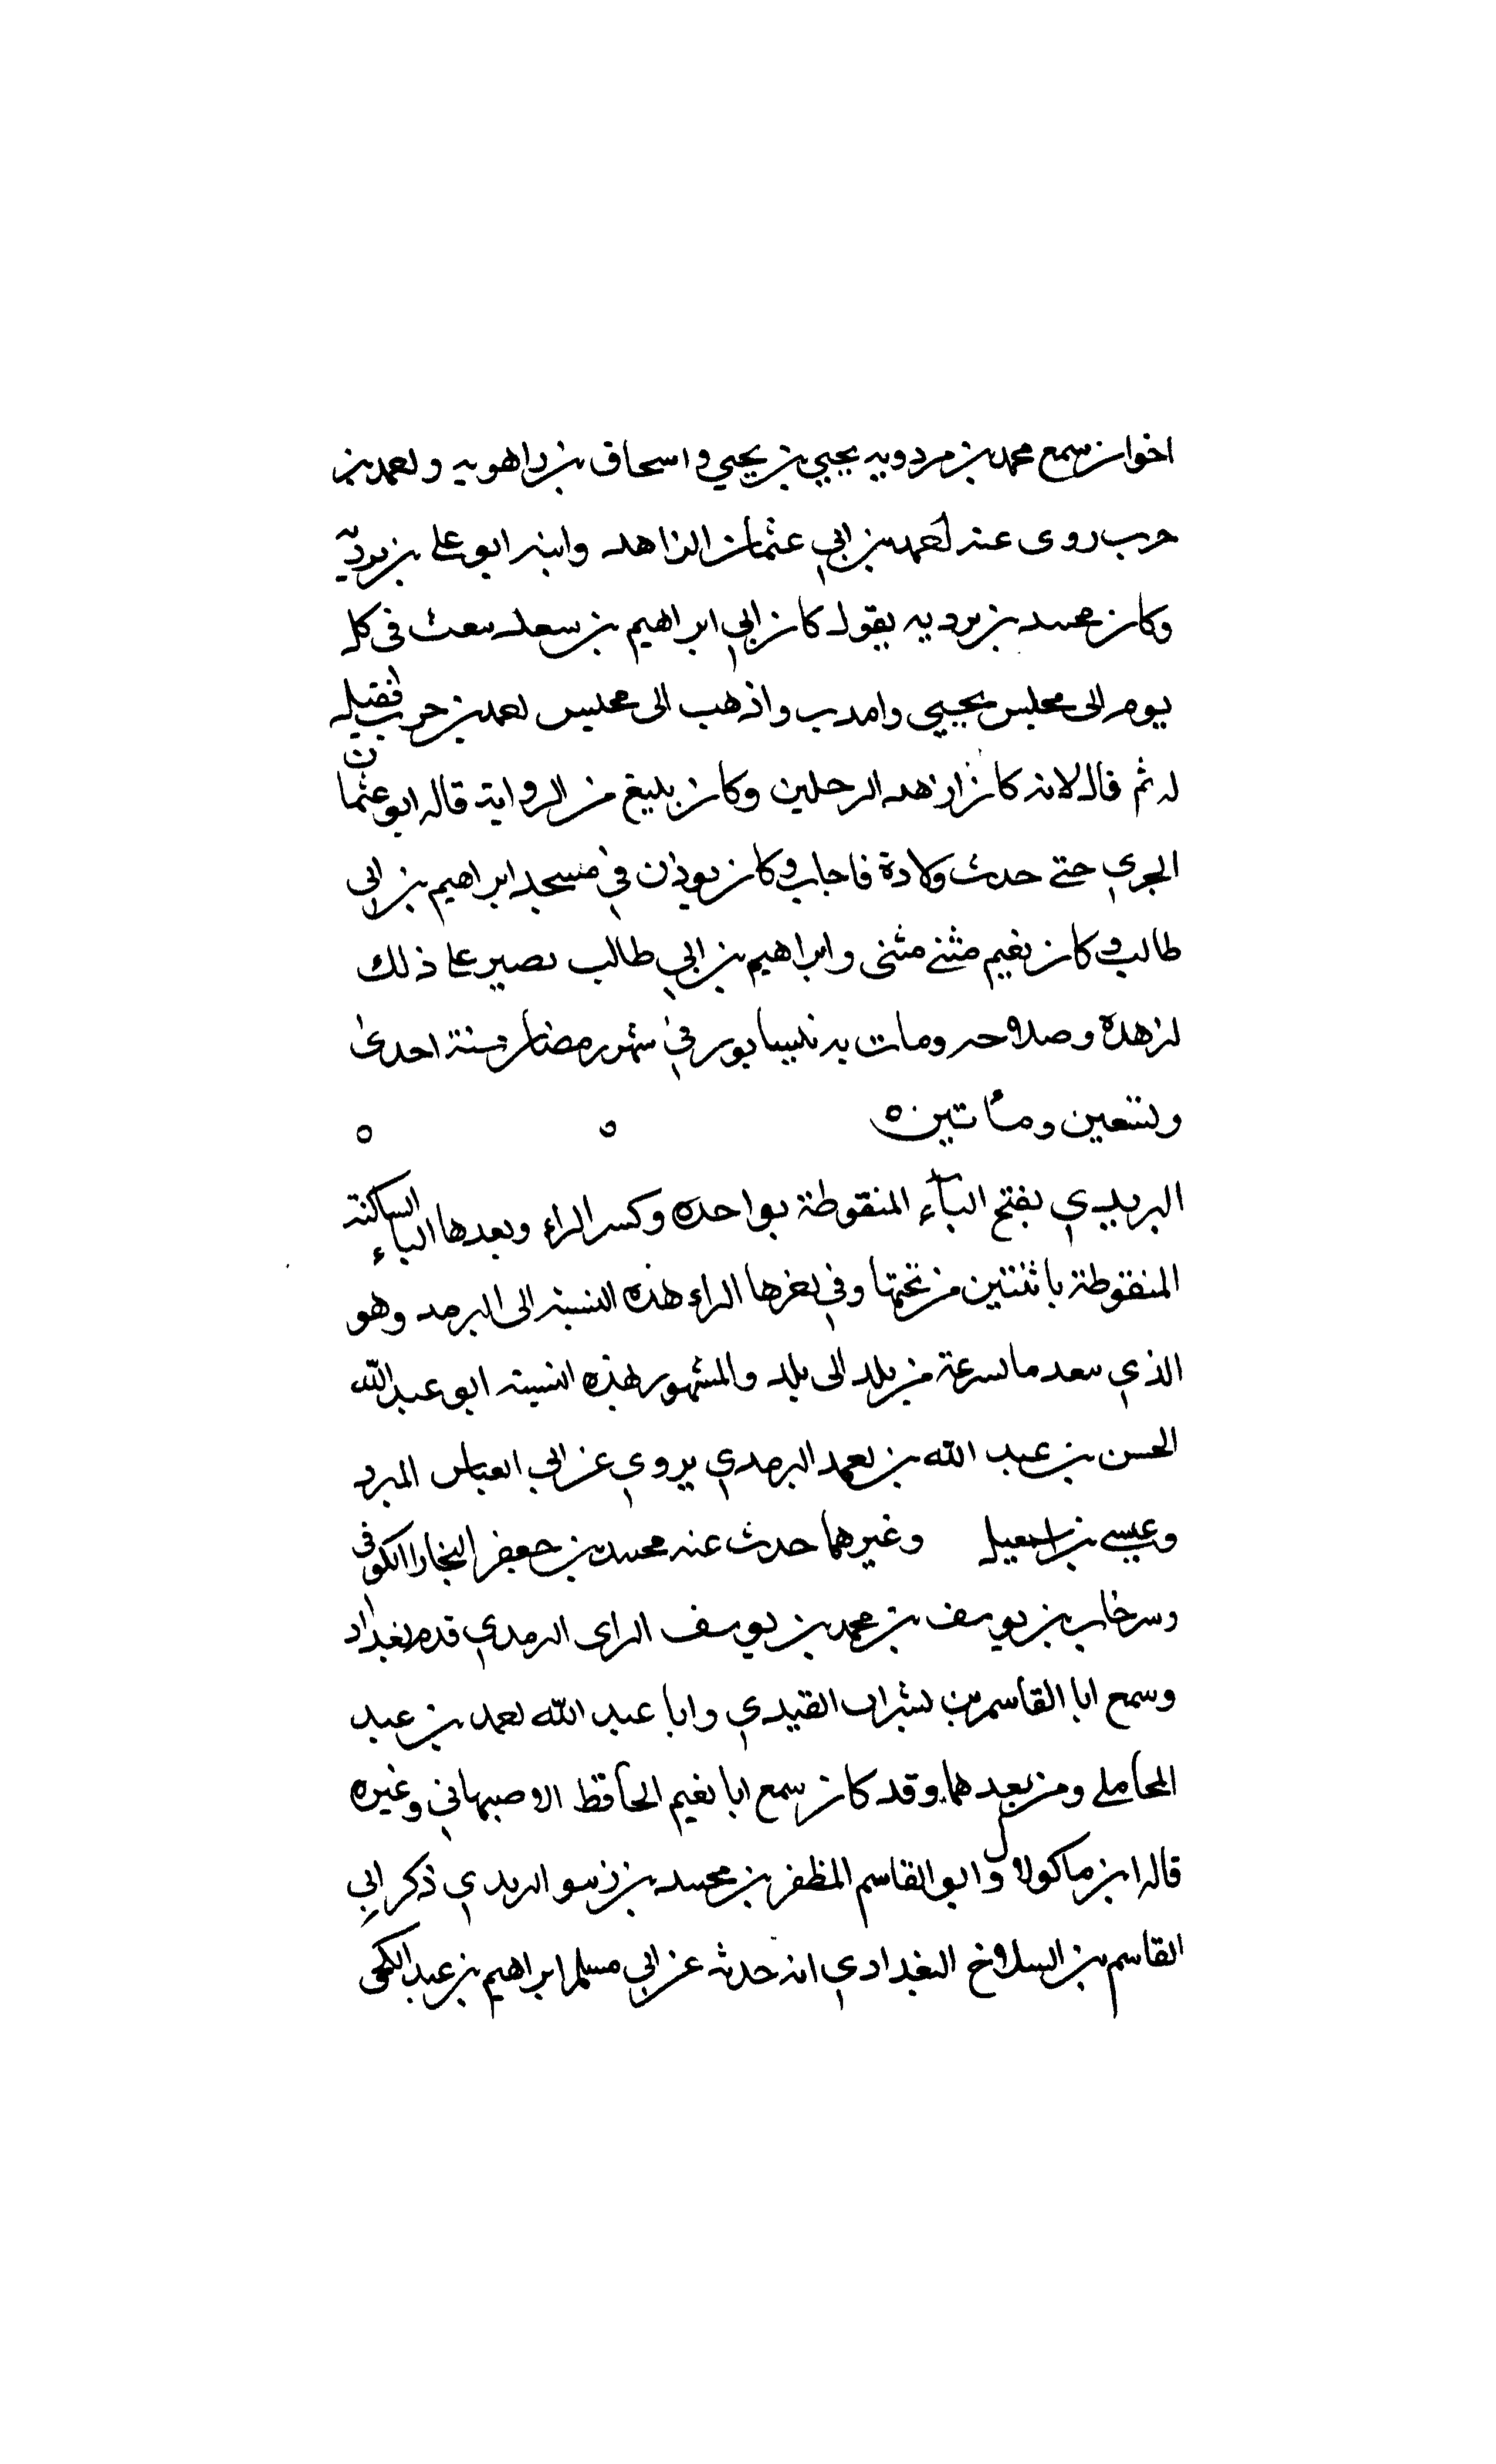 اخوان سمع محمد بن مردويه يحيى بن يحيى واسحاق بن راهويه واحمد بن
حرب روى عنه احمد بن ابي عثمان الزاهد وابنه ابو علي بن بردية
وكان محمد بن برديه يقول كان ابي ابراهيم بن سعد يبعث في كل
يوم الى مجلس يحيى وامدب واذهب الى مجلس احمد بن حرب فقيل
له ثم قال لانه كان ازهد الرجلين وكان يليغ من الرواية قاله ابو عثمان
الجري حتى حدث ولادة فاجاب وكان يوذن في مسجد ابراهيم بن ابي
طالب وكان يغيم مثنى مثنى وابراهيم بن ابي طالب يصير على ذلك
لزهده وصلاحه ومات به نيسابور في شهر رمضان سنة احدى
وتسعين ومأتين ه
البريدي بفتح الباء المنقوطة بواحده وكسر الراء وبعدها الياء الساكنة
المنقوطة باثنتين من تحتها وفي اخرها الراء هذه النسبة الى البرمد وهو
الذي سعد ما بسرعة من بلد الى بلد والمشهور بهذه النسبة ابو عبد الله
الحسن بن عبد الله بن احمد البرمدي يروي عن ابي العباس المبرد
وعيسى بن اسمعيل وغيرهما حدث عنه محمد بن جعفر النجار الكوفي
وسرخاب بن يوسف بن محمد بن يوسف الرازى البرمدي قدم بغداد
وسمع ابا القاسم بن بشران القيدي وابا عبد الله احمد بن عبد
المحاملي ومن بعدهما وقد كان سمع ابا نعيم الحافظ الاصبهاني وغيره
قاله ابن ماكولا وابو القاسم المظفر بن محمد بن زسو البريدي ذكر ابي
القاسم بن السلاخ البغدادي انه حدثه عن ابي مسلم ابراهيم بن عبد الكجى